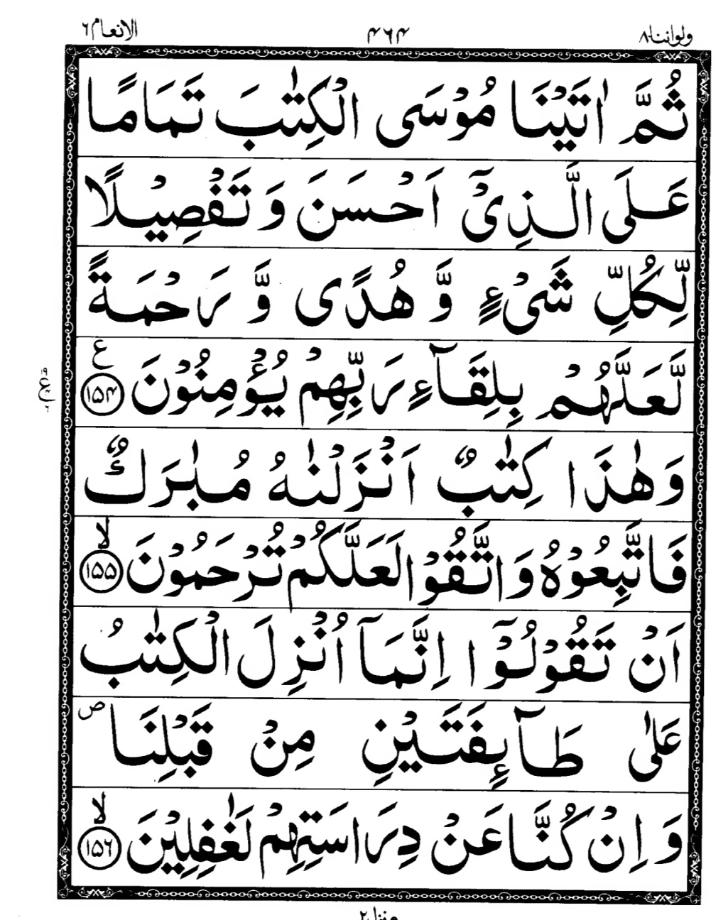 ولواننا۸ ۴۶۴ الانعام۶
ثُمَّ اٰتَيْنَا مُوْسَى الْكِتٰبَ تَمَامًا
عَلَى الَّذِيْۤ اَحْسَنَ وَ تَفْصِيْلًا
لِّكُلِّ شَيْءٍ وَّ هُدًى وَّ رَحْمَةً
لَّعَلَّهُمْ بِلِقَآءِ رَبِّهِمْ يُؤْمِنُوْنَ ع ۱۵۴
وَهٰذَا كِتٰبٌ اَنْزَلْنٰهُ مُبٰرَكٌ
فَاتَّبِعُوْهُ وَاتَّقُوْا لَعَلَّكُمْ تُرْحَمُوْنَ لا ۱۵۵
اَنْ تَقُوْلُوْۤا اِنَّمَاۤ اُنْزِلَ الْكِتٰبُ
عَلٰى طَآئِفَتَيْنِ مِنْ قَبْلِنَا ص
وَ اِنْ كُنَّا عَنْ دِرَاسَتِهِمْ لَغٰفِلِيْنَ لا ۱۵۶
منزل۲